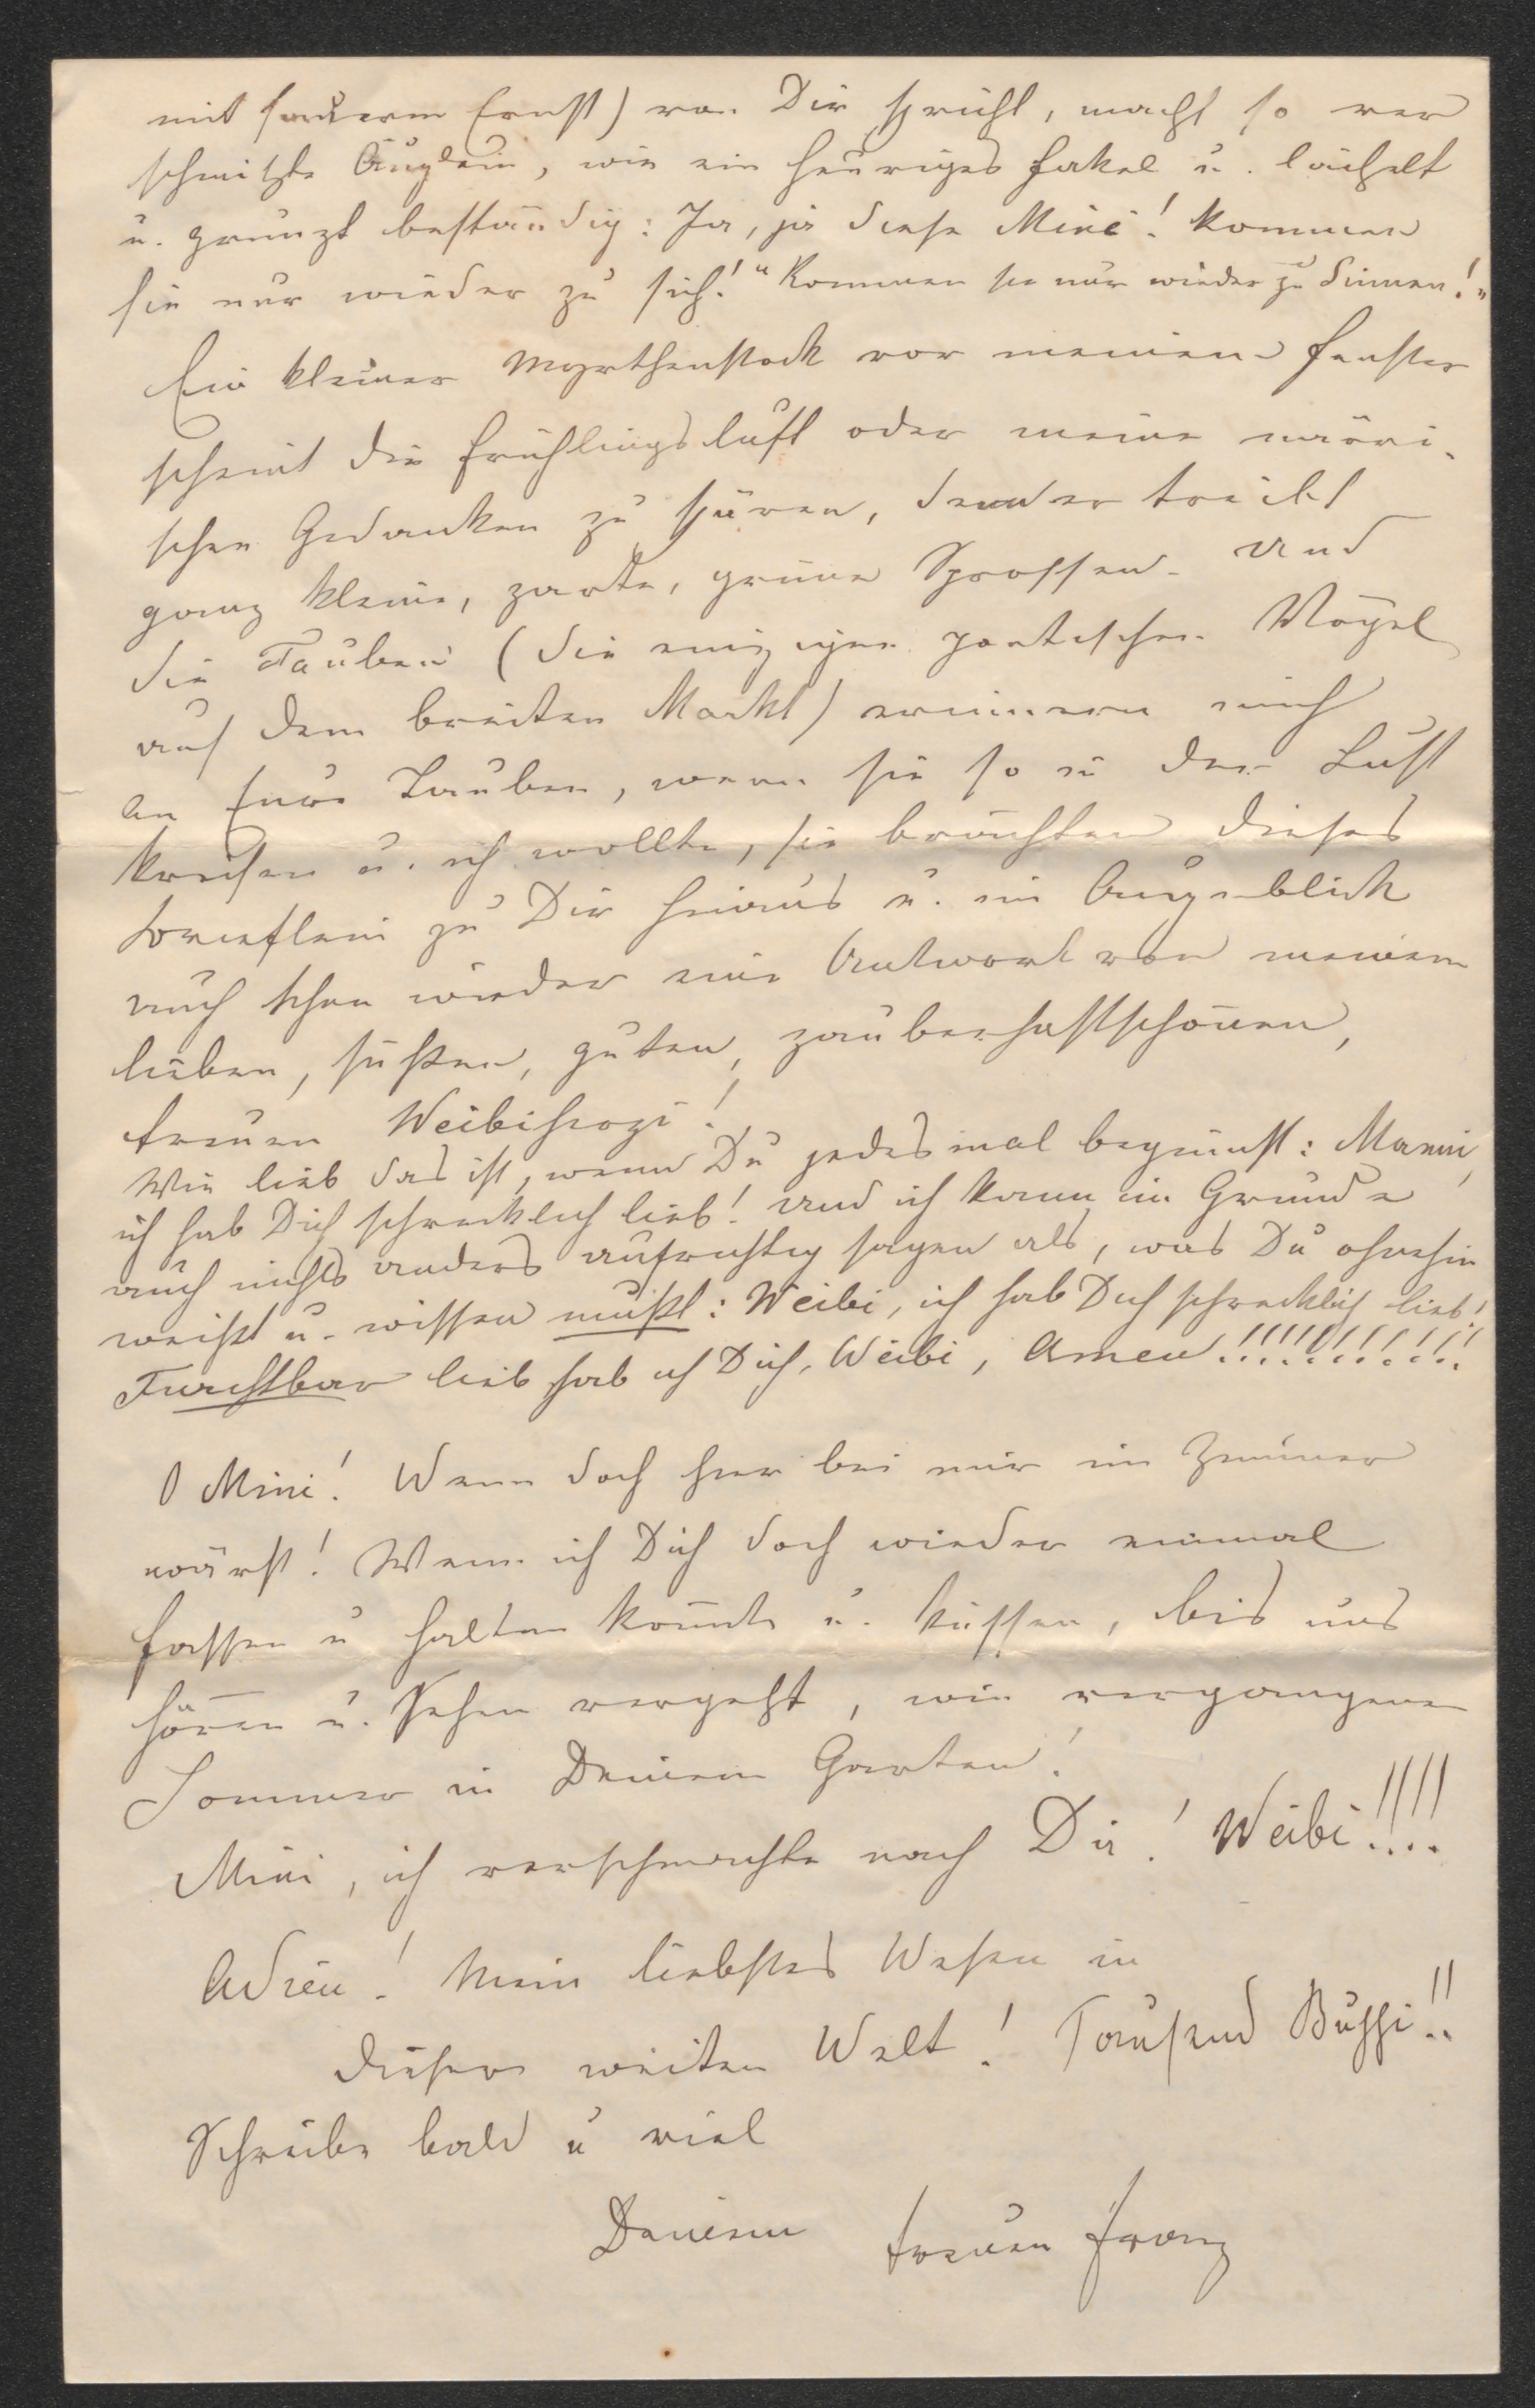 mit sauerem Ernst) von Dir spricht, macht so ver
schmitzte Äuglein, wie ein heuriges Fakel u. lächelt
u. grunzt beständig: Ja, ja diese Mini! Kommen
Sie nur wieder zu sich! "Kommen sie nur wieder zu Sinnen!"
Ein kleiner Myrthenstock vor meinem Fenster
scheint die Frühlingsluft oder meine närri-
schen Gedanken zu spüren, denn er treibt
ganz kleine, zarte, grüne Sprossen. Und
die Tauben (die einzigen poetischen Vögel
auf dem breiten Markt) erinnern mich
an Eure Tauben, wenn sie so in der Luft
kreisen u. ich wollte, sie brächten dieses
Brieflein zu Dir hinaus u. im Augenblick
auch schon wieder eine Antwort von meinem
lieben, süßen, guten, zauberhaftschönen,
treuen
Wie lieb das ist, wenn Du jedesmal beginnst: Manni,
ich hab Dich schrecklich lieb! Und ich kann im Grunde
auch nichts anders aufrichtig sagen als, was Du ohnehin
weißt u. wissen mußt: Weibi, ich hab Dich schrecklich lieb!
Furchtbar lieb hab ich Dich, Weibi, Amen!!!!!!!!!!!!
O Mini! Wenn doch hier bei mir im Zimmer
wärst! Wenn ich Dich doch wieder einmal
fassen u halten könnte u. küssen, bis uns
Hören u. Sehen vergeht, wie vergangenen
Sommer in Deinem Garten!
Mini, ich verschmachte nach Dir! Weibi!!!!
Adieu! Mein liebstes Wesen in
dieser weiten Welt! Tausend Bussi!!
Schreibe bald u viel
Deinem treuen Franz